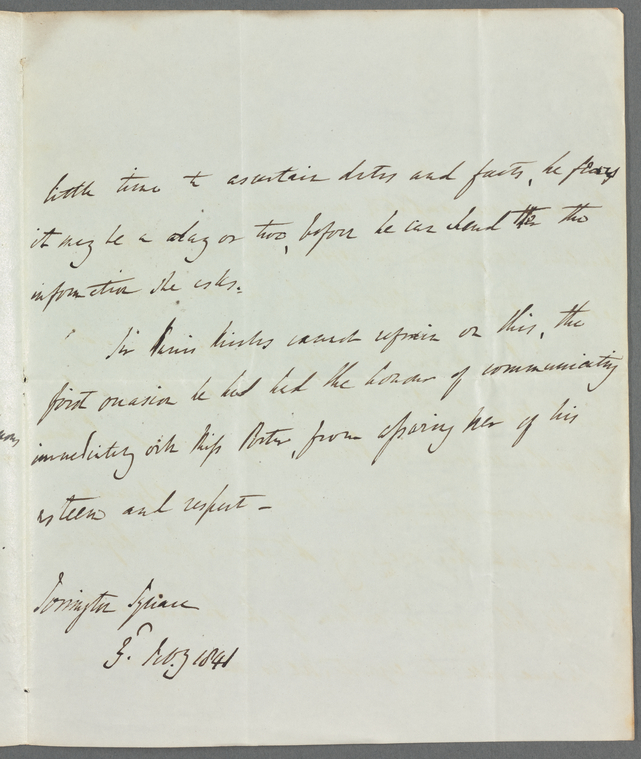 little time to ascertain dates and facts, he fears
it may be a day or two, before he can send her the
information she asks.
Sir Harris Nicolas cannot refrain on this, the
first occasion he has had the honour of communicating
immediately with Miss Porter, from assuring her of his
esteem and respect –
Torrington Square
3d. Feby 1841